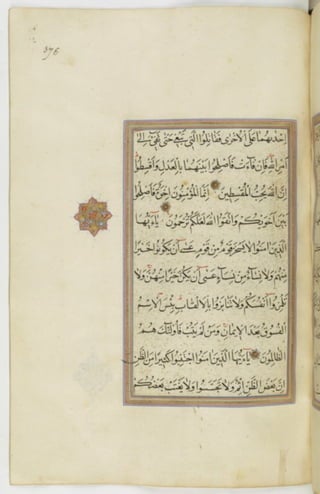 إحديهما على الأخرى فقاتلوا التي تبغي حتى تفيء إلى
أمر الله فإن فاءت فأصلحوا بينهما بالعدل وأقسطوا
إن الله يحب المقسطين إنما المؤمنون إخوة فأصلحوا
بين أخويكم واتقوا الله لعلكم ترحمون يا أيها
الذين آمنوا لا يسخر قوم من قوم عسى أن يكونوا خيرا
منهم ولا نساء من نساء عسى أن يكن خيرا منهن ولا
تلمزوا أنفسكم ولا تنابزوا بالألقاب بئس الاسم
الفسوق بعد الإيمان ومن لم يتب فأولئك هم
الظالمون يا أيها الذين آمنوا اجتنبوا كثيرا من الظن
إن بعض الظن إثم ولا تجسسوا ولا يغتب بعضكم